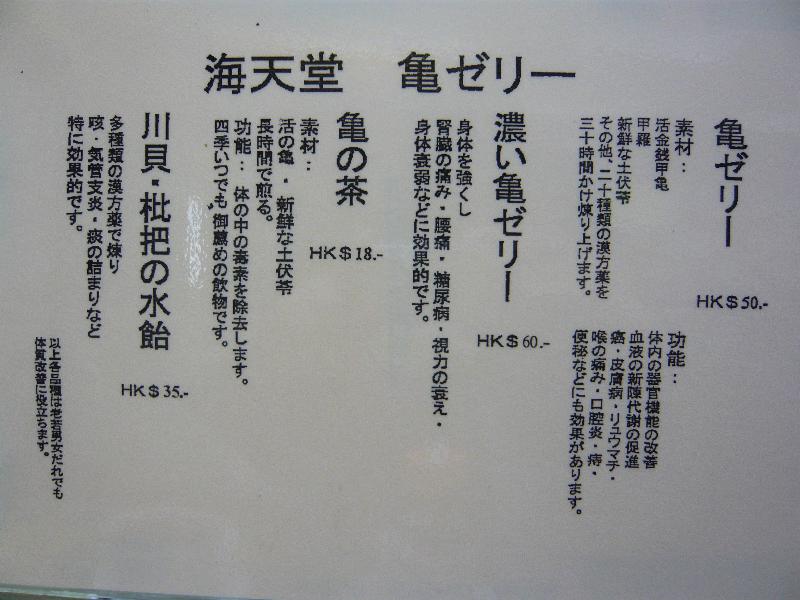 海天堂　亀ゼリー
亀ゼリー
HK$50.-
素材：
活金銭甲亀
甲羅
新鮮な土伏苓
その他、二十種類の漢方薬を
三十時間かけ煉り上げます。
功能：
体内の器官機能の改善
血液の新陳代謝の促進
癌・皮膚病・リュウマチ・
喉の痛み・口腔炎・痔・
便秘などにも効果があります。
濃い亀ゼリー
HK$60.-
身体を強くし
腎臓の痛み・腰痛・糖尿病・視力の衰え・
身体衰弱などに効果的です。
亀の茶
HK$18.-
素材：
活の亀・新鮮な土伏苓
長時間で煎る。
功能：体の中の毒素を除去します。
四季いつでも御薦めの飲物です。
川貝・枇把の水飴
HK$35.-
多種類の漢方薬で煉り
咳・気管支炎・痰の詰まりなど
特に効果的です。
以上各品種は老若男女だれでも
体質改善に役立ちます。